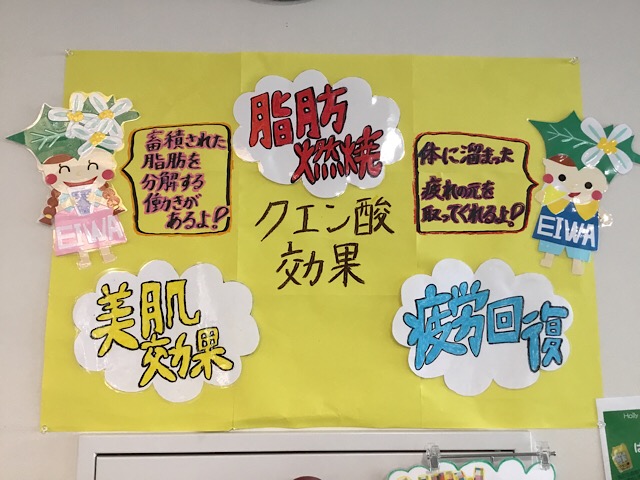 脂肪
燃焼
蓄積された
脂肪を
分解する
働きが
あるよ!
体に溜まった
疲れの元を
取ってくれるよ!
クエン酸
効果
EIWA
EIWA
美肌
効果
疲労回復
Holly
は